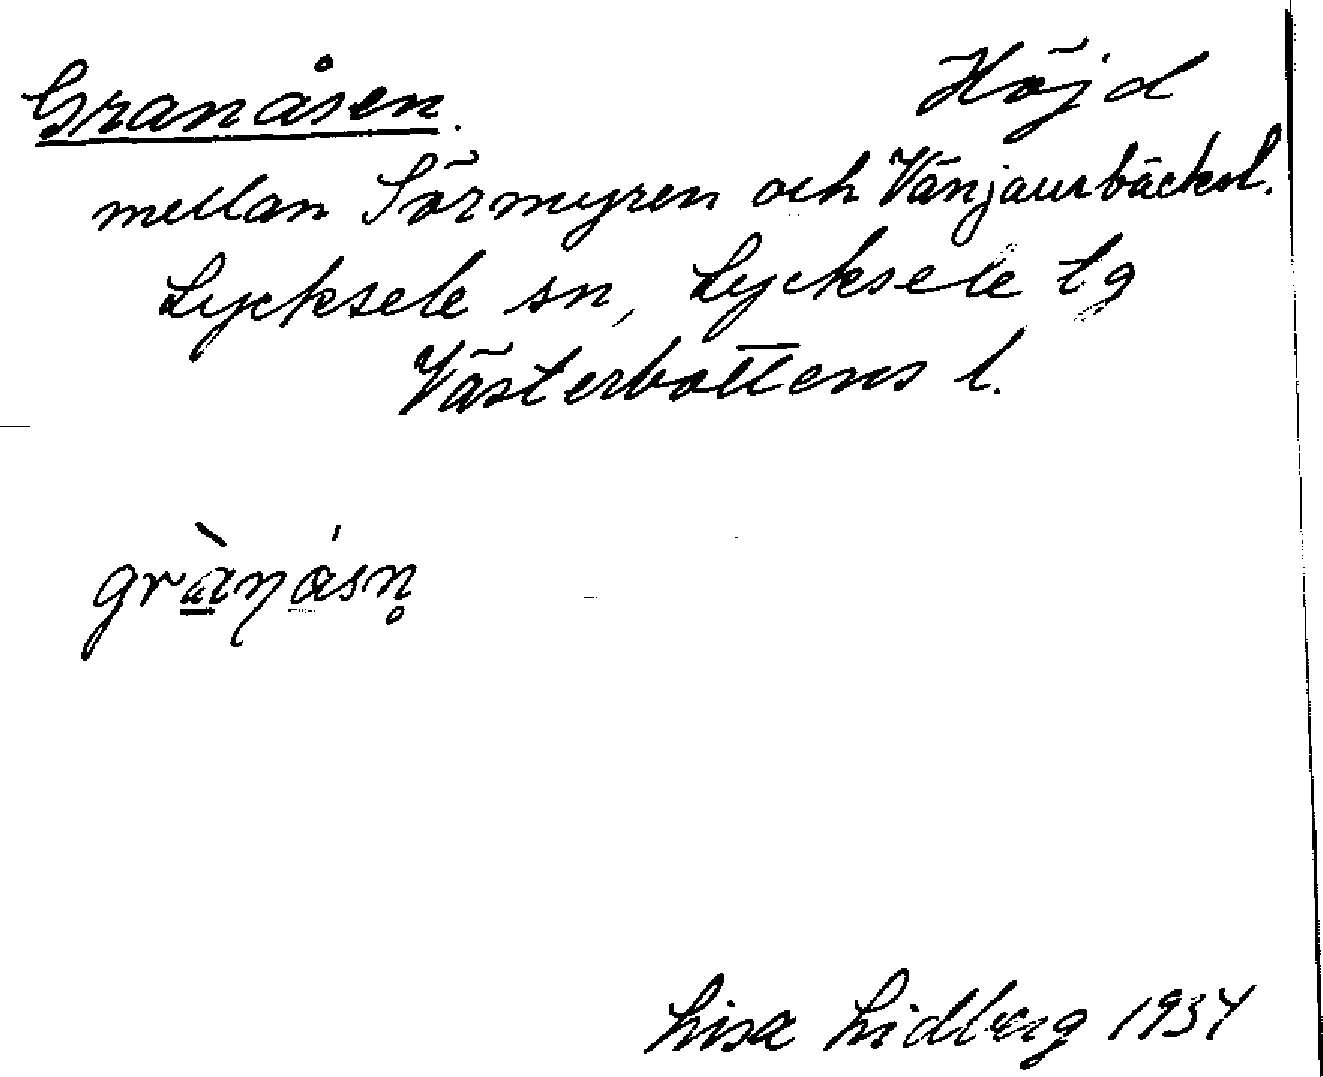 Granåsen. Höjd
mellan Sörmyren och Vänjaurbäcksl.
Lycksele sn, Lycksele lg
Västerbottens l.
grànåsn̥
Lisa Lidberg 1934